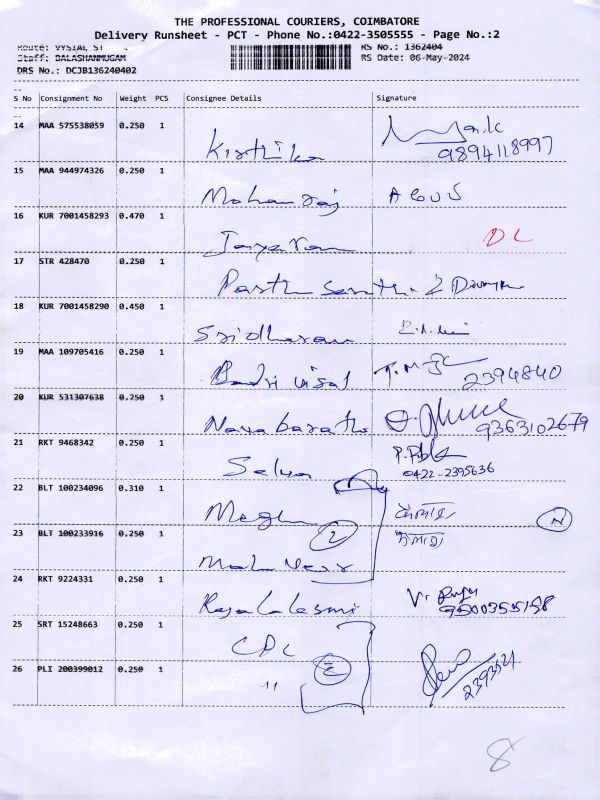 THE PROFESSIONAL COURIERS, COIMBATORE
Delivery Runsheet - PCT - Phone No.:0422-3505555 - Page No.:2
Route: VYSIAL ST RS No.: 1362404
Staff: BALASHANMUGAM RS Date: 06-May-2024
DRS No.: DCJB136240402
S No Consignment No Weight PCS Consignee Details Signature
14 MAA 575538059 0.250 1 Kirthika 9894118997
15 MAA 944974326 0.250 1 Mohanraj
16 KUR 7001458293 0.470 1 Jayaram DL
17 STR 428470 0.250 1 Parthasarathi
18 KUR 7001458290 0.450 1 Sridharan
19 MAA 109705416 0.250 1 Badri Visal 2394840
20 KUR 531307638 0.250 1 Nava barath 9363102679
21 RKT 9468342 0.250 1 Selva 0422-2395636
22 BLT 100234096 0.310 1 Megha N
23 BLT 100233916 0.250 1 2
24 RKT 9224331 0.250 1 Rajalalesmi
25 SRT 15248663 0.250 1 CPC
26 PLI 200399012 0.250 1 " 2
8